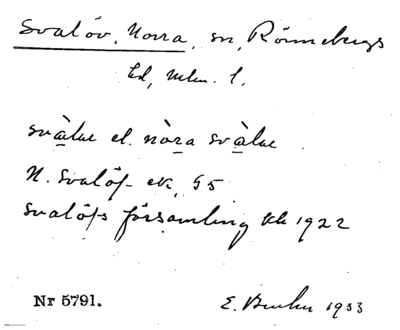 Svalöv, Norra, sn, Rönnebergs
hd, Mlm. l.
svàlue el. nòra svàlue
N. Svalöf ek, G5
Svalöfs församling kk 1922
Nr 5791. E. 1933